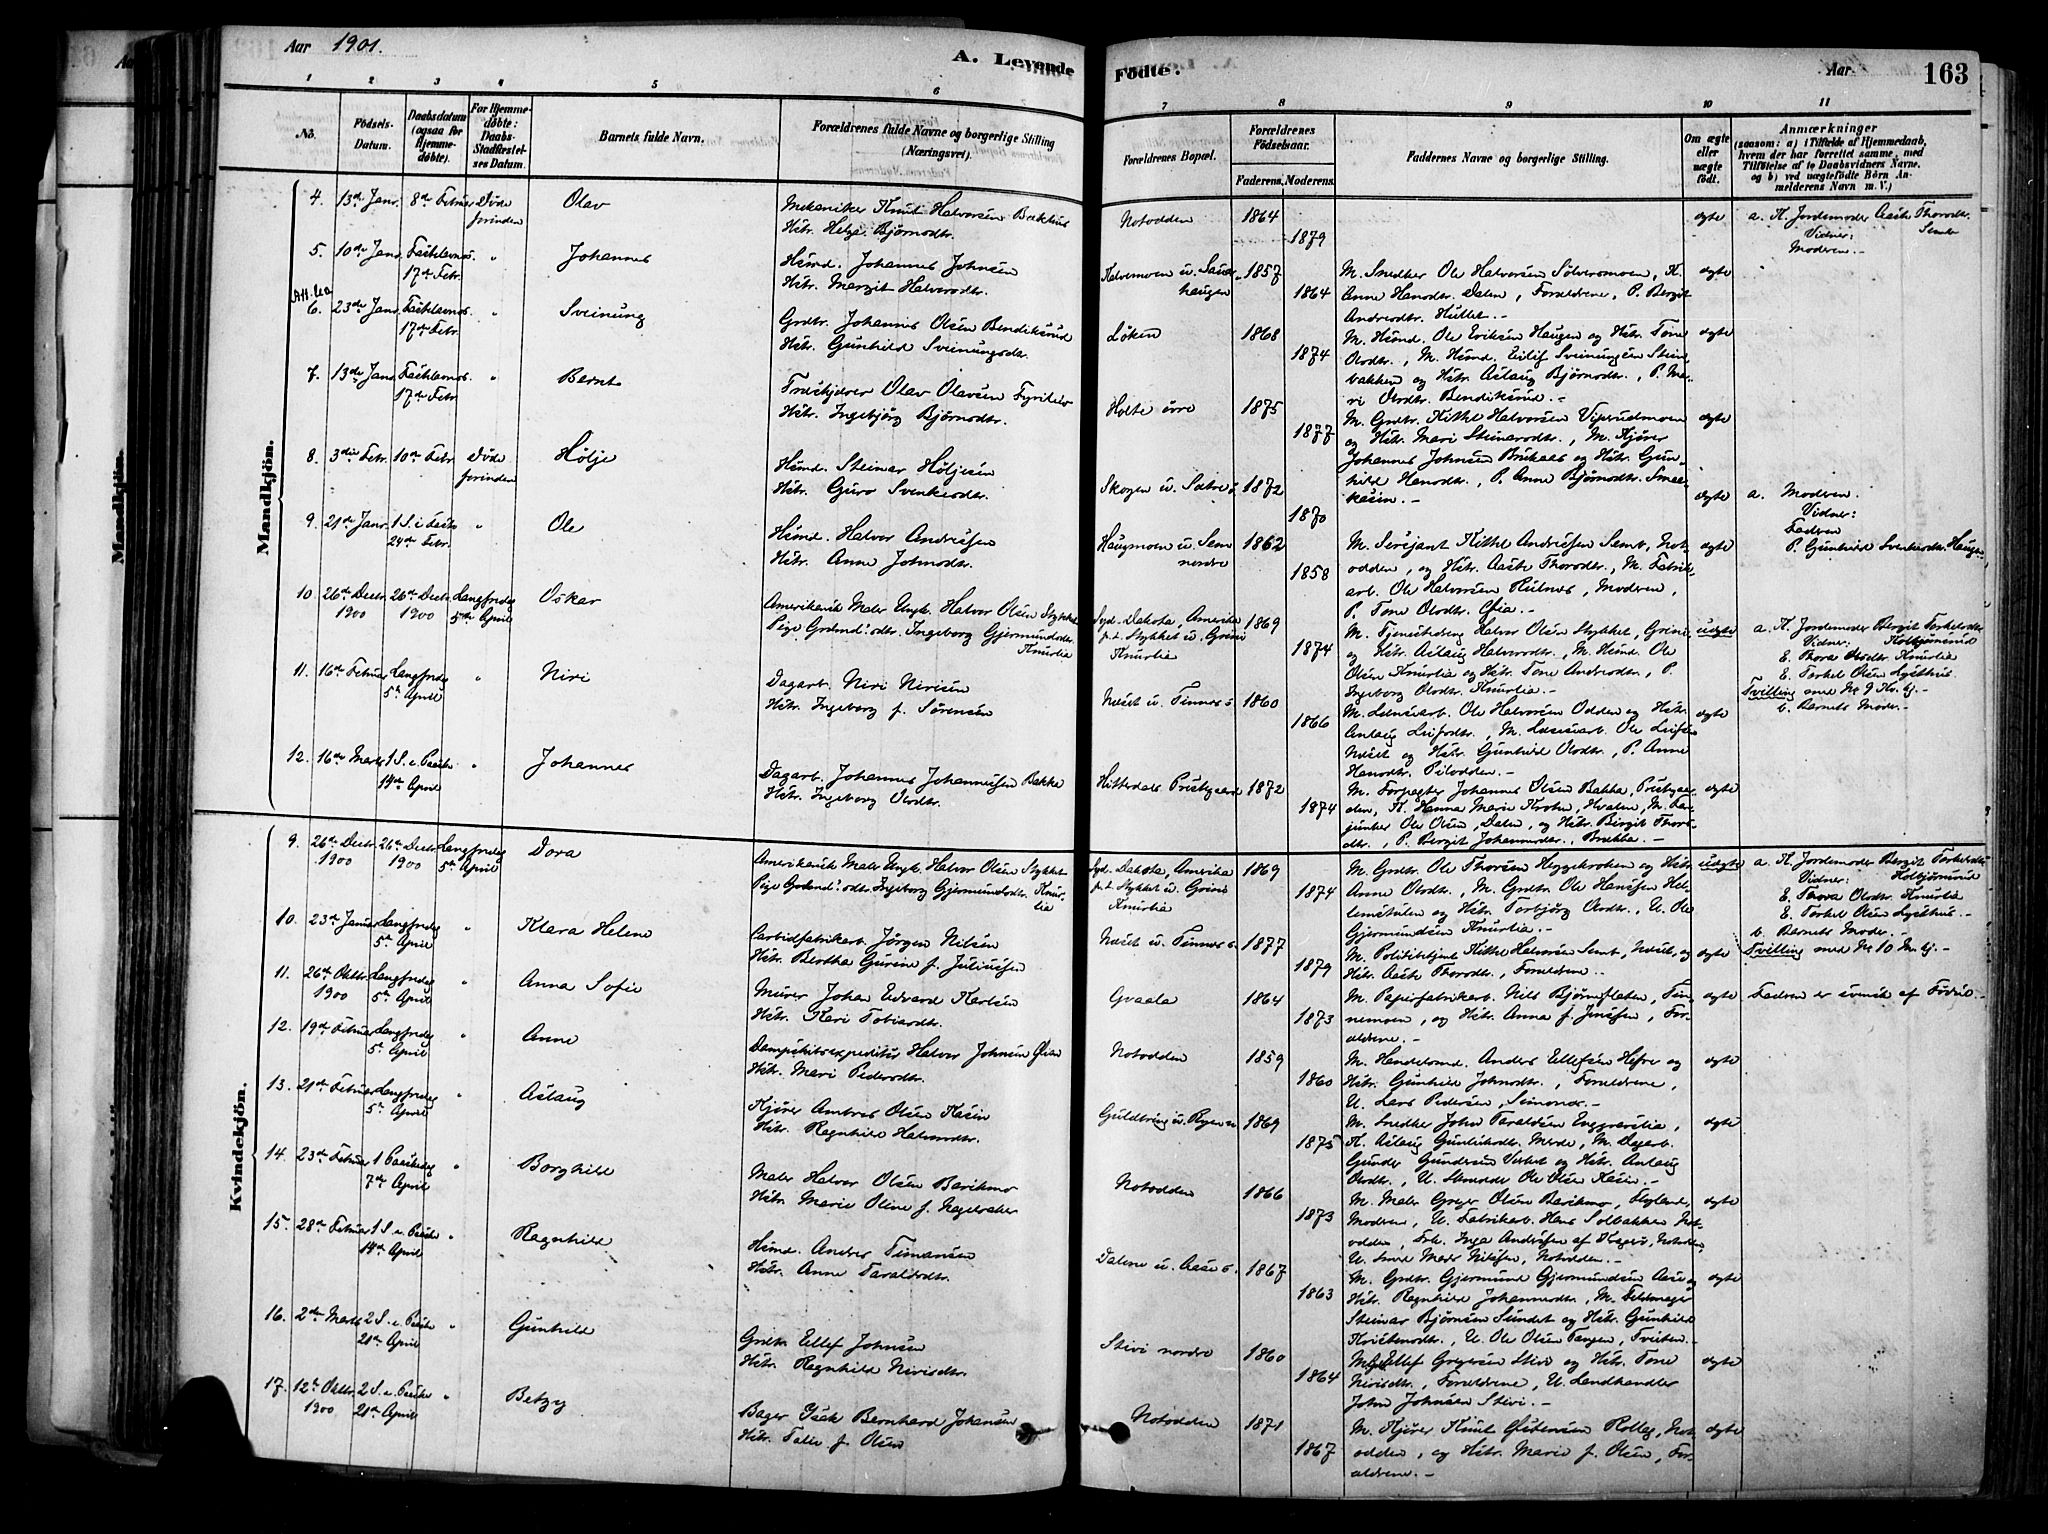 Aar 1901.
A. Levende Födte.
Aar
163
1 2 3 4 5 6 7 8 9 10 11
No. Födsels-Datum. Daabsdatum (ogsaa for Hjemme-döbte). For Hjemme-döbte: Daabs-Stadfæstel-ses Datum. Barnets fulde Navn. Forældrenes fulde Navne og borgerlige Stilling (Næringsvei). Forældrenes Bopæl. Forældrenes Födselsaar. Faderens. Moderens. Faddernes Navne og borgerlige Stilling. Om ægte eller uægte födt. Anmærkninger (saasom: a) i Tilfælde af Hjemmedaab, hvem der har forrettet samme, med Tilföielse af to Daabsvidners Navne, og b) ved uægtefödte Börn An-melderens Navn m. V.)
Mandkjön.
4. 13de Janr. 8de Februar Döde forinden Olav Mekaniker Knut Halvorsen Bakkhus
Hstr. Helge Björnsdtr. Notodden 1864 1879 ægte a. K. Jordemoder Aaste Thorsdtr. Semb
Vidner:
Moderen.-
5. 10de Janr. Fastelavns. 17de Febr. " Johannes Husmd. Johannes Johnsen
Hstr. Margit Halvorsdtr. Kalvemoen u. Sauer-haugen 1857 1864 M. Snedker Ole Halvorsen Sölversmoen, K.
Anne Hansdtr. Dalen, Forældrene, P. Bergit
Andersdtr. Hullet.- ægte
6. 23de Janr. Fastelavns. 17de Febr. " Sveinung Grdbr. Johannes Olsen Bendiksrud
Hstr. Gunhild Sveinungsdr. Löken 1868 1874 M. Husmd. Ole Eriksen Haugen og Hstr. Tone
Olsdtr., M. Husmd. Eilif Sveinungsen Stein-
bakken og Hstr. Aslaug Björnsdtr., P. Ma-
ri Olsdtr. Bendiksrud.- ægte
7. 13de Janr. Fastelavns. 17de Febr. " Bernt Træskjærer Olav Olavsen Fyrileiv
Hstr. Ingebjörg Björnsdtr. Holte övre 1875 1877 M. Grdbr. Kittel Halvorsen Vipeudmoen
og Hstr. Mari Steinarsdtr., M. Kjörer
Johannes Johnsen Brukaas og Hstr. Gun-
hild Hansdtr., P. Anne Björnsdtr. Smee-
kasin.- ægte
8. 3die Febr. 10de Febr. Döde forinden Hölje Husmd. Steinar Höljesen
Hstr. Guro Svenkesdtr. Skogen u. Sætre s. 1872 1870 ægte a. Modren.
Vidner:
Fadren
P. Gunhild Svenkesdtr. Haugen
9. 21de Janr. 1 S. i Faste 24de Febr. " Ole Husmd. Halvor Andersen
Hstr. Anne Johnsdtr. Haugmoen u. Sem nordre 1862 1858 M. Sersjant Kittel Andersen Semb, Not-
odden, og Hstr. Aaste Thorsdtr., M. Fabrik-
arb. Ole Halvorsen Hulnes, Modren,
P. Tone Olsdtr. Öfia.- ægte
10. 26de Decbr. 1900 26de Decbr. 1900 Langfredag 5te April Oskar Amerikansk Maler Ungk. Halvor Olsen Stykket
Pige Grdmd.sdtr. Ingeborg Gjermundsdtr.
Knurlia Syd. Dakota, Amerika
p.t. Stykket u. Grini
Knurlia 1869 1874 M. Tjenestedreng Halvor Olsen Stykket, Grini
og Hstr. Aslaug Halvorsdtr., M. Husmd. Ole
Olsen Knurlia og Hstr. Tone Andersdtr., P.
Ingeborg Olsdtr. Knurlia.- uægte a. K. Jordemoder Bergit Torkelsdtr.
Vidner: Kolbjörnsrud
E. Thora Olsdtr. Knurlia
E. Torkel Olsen Lysthus.
Tvilling med No 9 Kv. kj.-
b. Barnets Moder.-
11. 16de Februar Langfredag 5te April " Niri Dagarb. Niri Nirisen
Hstr. Ingeborg f. Sörensen Næset u. Tinnes s. 1860 1866 M. Lænsearb. Ole Halvorsen Odden og Hstr.
Anlaug Leifsdtr., M. Læssearb. Ole Leifsen
Næset og Hstr. Gunhild Olsdtr., P. Anne
Hansdtr. Pilodden.- ægte
12. 16de Marts 1 S. e. Paaske 14de April " Johannes Dagarb. Johannes Johannessen Bakka
Hstr. Ingeborg Olsdtr. Hitterdals Præstegaard 1872 1874 M. Forpagter Johannes Olsen Bakka, Præstegaar-
den, K. Hanna Marie Krohn, Hvalen, M. Lar-
junker Ole Olsen, Dalen, og Hstr. Birgit Thors-
dtr., P. Bergit Johannesdtr. Brekka.- ægte
Kvindekjön.
9. 26de Decbr. 1900 26de Decbr. 1900 Langfredag 5te April Dora Amerikansk Maler Ungk. Halvor Olsen Stykket
Pige Grdmd.sdtr. Ingeborg Gjermundsdtr. Knur-
lia Syd. Dakota, Amerika
p.t. Stykket u. Grini
Knurlia 1869 1874 M. Grdbr. Ole Thorsen Heggekroken og Hstr.
Anne Olsdtr., M. Grdbr. Ole Hansen Hel-
lemstulen og Hstr. Torbjörg Olsdtr., U. Ole
Gjermundsen Knurlia.- uægte a. K. Jordemoder Bergit Torkelsdtr.
Vidner: Kolbjörnsrud
E. Thora Olsdtr. Knurlia
E. Torkel Olsen Lysthus.-
b. Barnets Moder.-
Tvilling med No 10 M. kj.-
10. 23de Januar Langfredag 5te April " Klara Helene Carbidfabrikarb. Jörgen Nilsen
Hstr. Bertha Gurine f. Juliussen Næset u. Tinnes s. 1877 1879 M. Politibetjent Kittel Halvorsen Semb, Næset, og
Hstr. Aaste Thorsdtr., Forældrene.- ægte
11. 26de Oktbr. 1900 Langfredag 5te April " Anna Sofie Murer Johan Edvard Karlsen
Hstr. Kari Tobiasdtr. Gvaala 1864 1873 M. Papirfabrikarb. Nils Björnefleten, Tin-
nemoen, og Hstr. Anna f. Jensen, For-
ældrene.- ægte Fadren er svensk af Födsel.-
12. 19de Februar Langfredag 5te April " Anne Dampskibsexpeditör Halvor Johnsen Öran
Hstr. Mari Pedersdtr. Notodden 1859 1860 M. Handelsmd. Anders Ellefsen Hefre og
Hstr. Gunhild Johnsdtr., Forældrene,
U. Lars Pedersen, Simones.- ægte
13. 21de Februar Langfredag 5te April " Aslaug Kjörer Ambros Olsen Kasin
Hstr. Ragnhild Halvorsdtr. Guldbring u. Ryen s. 1869 1875 M. Snedker John Taraldsen Enggravslia,
K. Aslaug Gunleiksdtr. Merde, M. Dagarb.
Gunder Gundersen Verket og Hstr. Anlaug
Olsdtr., U. Skrædder Ole Olsen Kasin.- ægte
14. 23de Februar 1 Paaskedag 7de April " Borghild Maler Halvor Olsen Bærikmo
Hstr. Marie Oline f. Nagelsaker Notodden 1866 1873 M. Maler Greger Olsen Bærikmo, Flyland,
Modren, U. Fabrikarb. Hans Solbakken Not-
odden, Frk. Inga Andersen af Kragerö, Notodden,
U. Smed Mads Nilsen, Notodden.- ægte
15. 28de Februar 1 S. e. Paaske 14de April " Ragnhild Husmd. Anders Timansen
Hstr. Anne Taraldsdtr. Dalene u. Aase s. 1867 1863 M. Grdbr. Gjermund Gjermundsen Aase og
Hstr. Ragnhild Johannesdtr., M. Feldmager
Steinar Björnsen Sundet og Hstr. Gunhild
Kristensdtr., U. Ole Olsen Tangen, Tveiten.- ægte
16. 2den Marts 2 S. e. Paaske 21de April " Gunhild Grdbr. Ellef Johnsen
Hstr. Ragnhild Nirisdtr. Stivi nordre 1860 1864 M. Ellef Gregersen Stivi og Hstr. Tone
Nirisdtr., Forældrene, U. Landhandler
John Johnsen Stivi.- ægte
17. 12te Oktbr. 1900 2 S. e. Paaske 21de April " Betzy Bager Isak Bernhard Johansen
Hstr. Talle f. Olsen Notodden 1871 1867 M. Kjörer Knut Östensen Rolleg, Not-
odden, og Hstr. Marie f. Olsen, For-
ældrene.- ægte